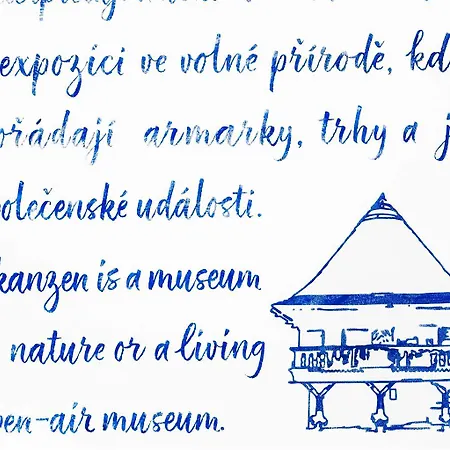 expozici ve volné přírodě, kd
ořádají armarky, trhy a j
olečenské události.
kanzen is a museum
nature or a living
pen-air museum.